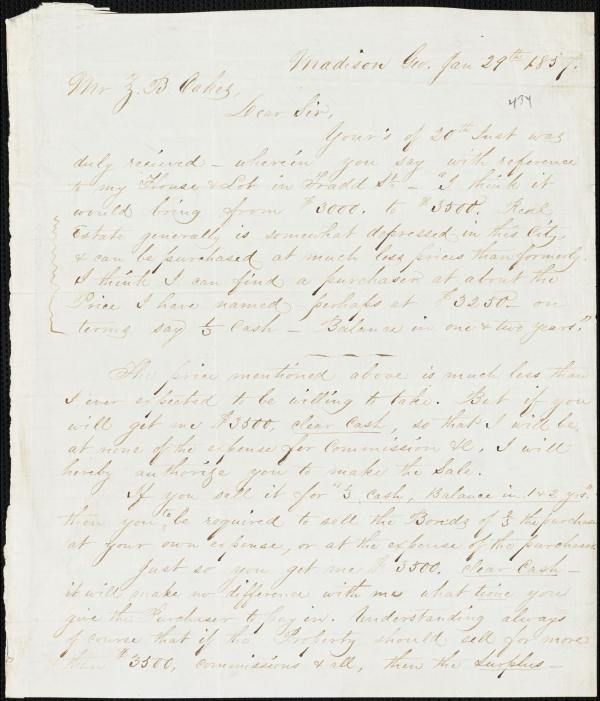 Madison Geo. Jan 29th 1857.
Mr Z. B. Oakes,
434
Dear Sir,
Your's of 20th Inst was
duly recieved – wherein you say with reference
to my House & Lot in Tradd St – "I think it
would bring from $3000. to $3500. Real
Estate generally is somewhat depressed in this City,
& can be purchased at much less prices than formerly.
I think I can find a purchaser at about the
Price I have named perhaps at $3250 on
terms say 1/3 Cash – Balance in one & two years."
The price mentioned above is much less than
I ever expected to be willing to take. But if you
will get me $3500, clear Cash, so that I will be
at none of the expense for Commission &c, I will
hereby authorize you to make the Sale.
If you sell it for "1/3 cash, Balance in 1 & 2 yrs."
then you'l be required to sell the Bonds of 2/3 the purchase
at your own expense, or at the expense of the purchaser
Just so you get me $3500. clear Cash –
it will make no difference with me what time you
give the Purchaser to pay in. Understanding always
of course that if the Property should sell for more
than $3500, commissions & all, then the surplus –